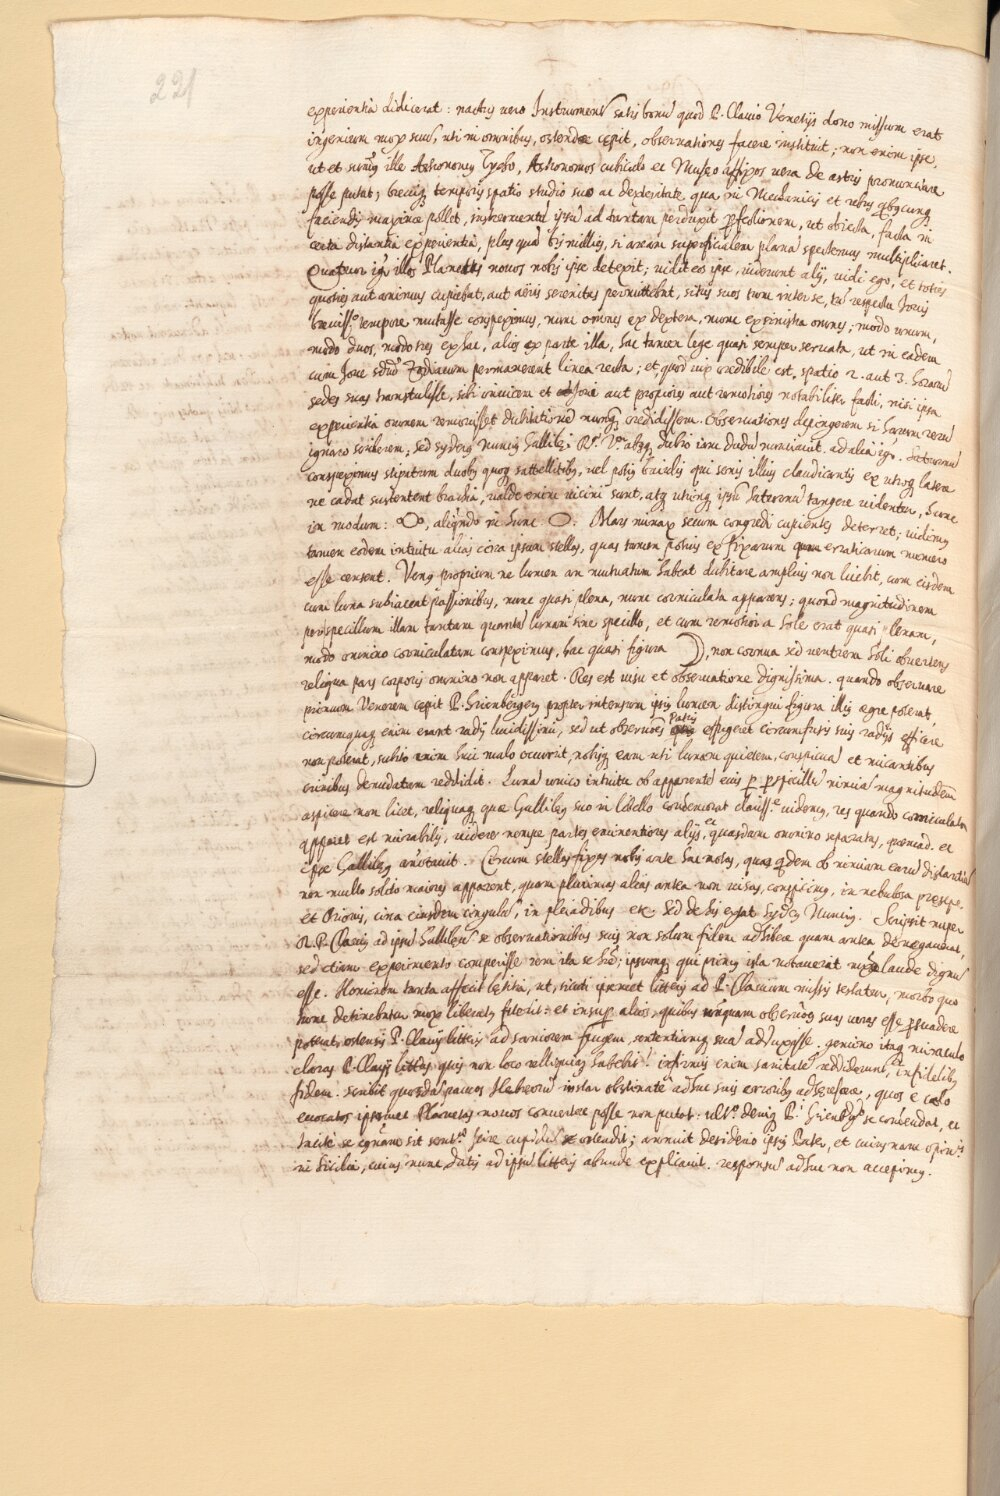 221
experientia didicerat: nactus vero Instrumentũ satis bonũ quod P. Clavio Venetijs dono missum erat
ingenium mox suũ, uti in omnibus, ostendere cepit, observationes facere instituit; non enim ipse,
ut et sum̃us ille Astronomus Tycho, Astronomos cubiculo et Museo affixos vera de astris pronunciare
posse putat; brevique temporis spatio studio suo ac dexteritate, qua in Mechanicis et rebus
faciendis maxime pollet, instrumentũ ipsũ ad tantam perduxit perfectionem, ut obiecta, facta in
certa distantia experientia, plus quã bis millies, si aream superficialem planã spectemus multiplicaret.
Quatuor igr̃ illos Planetas novos nobis ipse detexit; vidit eos ipse, viderunt alij, vidi ego, et toties
quoties aut animus cupiebat, aut aëris serenitas permittebat, situs suos tum inter se, tũ respectu Iovis
breviss.º tempore mutasse conspeximus, nunc omnes ex dextera, nunc ex sinistra omnes; modo unum,
modo duos, modo tres ex hac, alios ex parte illa, hac tamen lege quasi semper servata, ut in eadem
cum Iove Zodiacum permanerent linea recta; et, quod vix credibile est, spatio 2. aut 3. horarũ
sedes suas transtulisse, sibi invicem et Iovi aut propiores aut remotiores notabiliter facti, nisi ipsa
experientia omnem removisset dubitationẽ nunquã credidissem. Observationes depingerem si harum rerũ
ignaro scriberem, sed sydereus nuncius Gallilei R.ª V.ª absque dubio iam dudũ nunciavit. ad alia igr̃. Saturnũ
conspeximus stipatum duobus quoque sattellitibus, vel potius brachijs qui senis illius claudicantis ex utroque latere
ne cadat sustentent brachia, valde enim vicini sunt, atque utrinque ipsũ Saturnũ tangere videntur, hunc
in modum: oOo, aliquando in hunc: O. Mars minax secum congredi cupientes deterret; vidimus
tamen eodem intuitu alias circa ipsum stellas, quas tamen potius ex fixarum quam erraticarum numero
esse censent. Venus proprium ne lumen an mutuatum habeat dubitare amplius non licebit, cum eisdem
cum luna subiaceat passionibus, nunc quasi plena, nunc corniculata apparens; quoad magnitudinem
perspicillum illam tantam quantũ lunam sine spicillo, et cum remotior a Sole erat quasi plenam,
modo omnino corniculatam conspeximus, hac quasi figura ☽, non cornua sed ventrem Soli obvertens
reliqua pars corporis omnino non apparet. Res est visu et observatione dignissima. quando observare
primum Venerem cepit P. Grienbergerus propter intensum ipsius lumen distingui figura illius ægre poterat,
circumquaque enim erant radij lucidissimi, sed ut observãtes Patris effugeret circumfusis suis radijs efficere
non poterat, subito enim huic malo occurrit, nobisque eam uti lunam quietem, conspicuã et micantibus
crinibus denudatam reddidit. Lunã unico intuitu ob apparentẽ eius per perspicillũ nimiã magnitudinẽ
aspicere non licet, reliquaque quæ Gallileus suo in libello condecorat clariss.e videmus, res quando corniculata
apparet est mirabilis, videre nempe partes eminentiores alijs, et quasdam omnino separatas, quemad. et
ipse Gallileus an̄otavit. Circum stellas fixas nobis ante hac notas, quae quidem ob nimiam earũ distantiã
non multo solito maiores apparent, quam plurimas alias antea non visas, conspicimus, in nebulosa præsepe.
et Orionis, circa eiusdem cingulũ, in pleiadibus etc: sed de his extat Syd.s Nuncius. Scripsit nuper
R. P. Clavius ad ipsũ Gallileũ se observationibus suis non solum fidem adhibere quam antea denegaverat,
sed etiam experimento comperisse rem ita se hr̃e; ipsumque qui primus ista notaverat laude dignũ
esse. Hominem tanta affecit lætitia, ut, sicuti ipsemet litteris ad P. Clavium missis testatur, morbo quo
tunc detinebatur mox liberatus fuerit: et insuper alios, quibus nunquam observões suas veras esse persuadere
poterat, ostensis P. Clavij litteris ad saniorem frugem, sententiamque suã adduxisse. gemino itaque miraculo
claras P. Clavij litteras quis non loco relliquias habebit! infirmis enim sanitatẽ reddiderunt, et infidelibus
fidem. scribit quosdã paucos Hebreorũ instar obstinatẽ adhuc suis erroribus adhæsere, quos e cœlo
evocatos ipsimet Planetas novos convertere posse non putat. ult.º denique P. Grienb.s se com̃endat, et
Incitè se quænam sit sent.ª scire cupidũ se ostendit; annuit desiderio ipsius Pater, et cuius nam opin.is
in Sicilia, cuius nunc datis ad ipsũ litteris abunde explicavit. responsũ adhuc non accepimus.